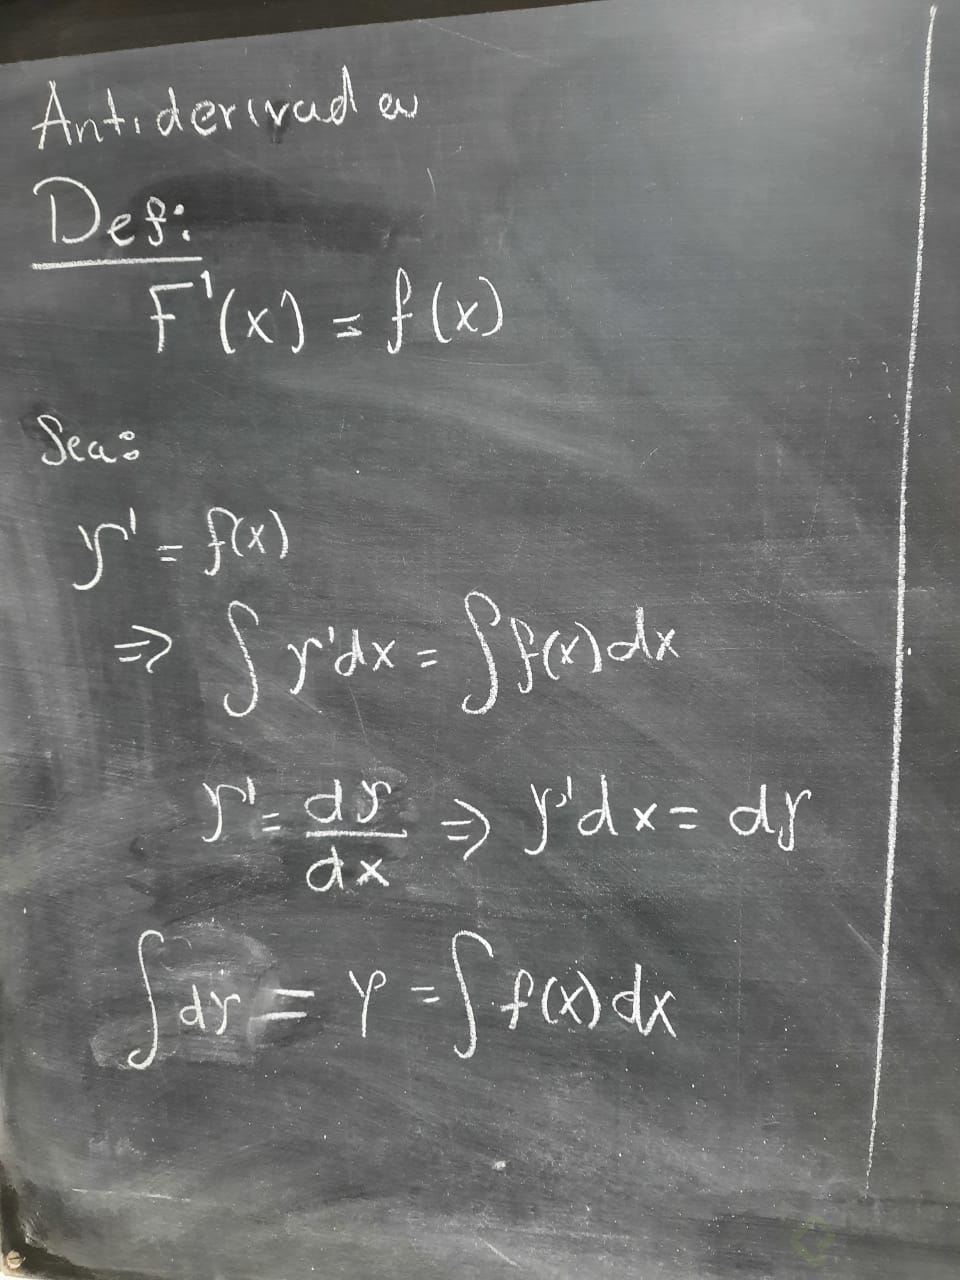 Antiderivadas
Def:
F'(x) = f(x)
Sea:
y' = f(x)
⇒ ∫ y'dx = ∫ f(x) dx
y' = dy/dx ⇒ y'dx = dy
∫ dy = y = ∫ f(x) dx